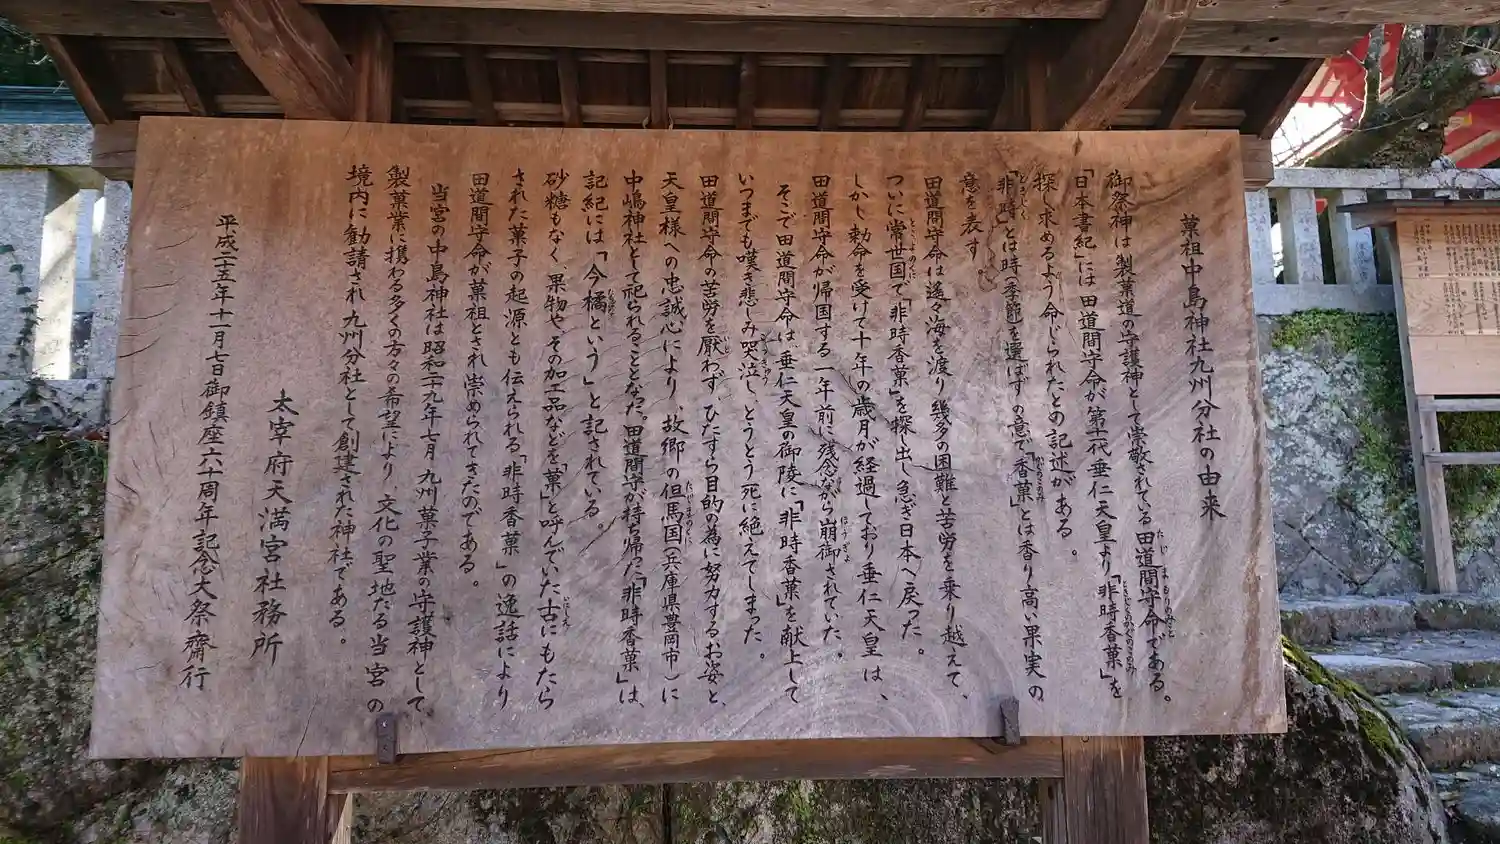 菓祖中島神社九州分社の由来
御祭神は製菓道の守護神として崇敬されている田道間守命である。
「日本書紀」には田道間守命が第十一代垂仁天皇より「非時香菓」を
探し求めるよう命じられたとの記述がある。
「非時」とは時(季節)を選ばずの意で「香菓」とは香り高い果実の
意を表す。
田道間守命は遙々海を渡り幾多の困難と苦労を乗り越えて、
ついに常世国で「非時香菓」を探し出し急ぎ日本へ戻った。
しかし勅命を受けて十年の歳月が経過しており垂仁天皇は、
田道間守命が帰国する一年前に残念ながら崩御されていた。
そこで田道間守命は垂仁天皇の御陵に「非時香菓」を献上して
いつまでも嘆き悲しみ哭泣し、とうとう死に絶えてしまった。
田道間守命の苦労を厭わず、ひたすら目的の為に努力するお姿と、
天皇様への忠誠心により、故郷の但馬国(兵庫県豊岡市)に
中嶋神社として祀られることとなった。田道間守が持帰った「非時香菓」は、
記紀には「今橘という」と記されている。
砂糖もなく、果物や、その加工品などを「菓」と呼んでいた古にもたら
された菓子の起源とも伝えられる「非時香菓」の逸話により
田道間守命が菓祖とされ崇められてきたのである。
当宮の中島神社は昭和二十九年七月九州菓子業の守護神として、
製菓業に携わる多くの方々の希望により、文化の聖地たる当宮の
境内に勧請され九州分社として創建された神社である。
太宰府天満宮社務所
平成二十五年十一月七日御鎮座六十周年記念大祭齋行